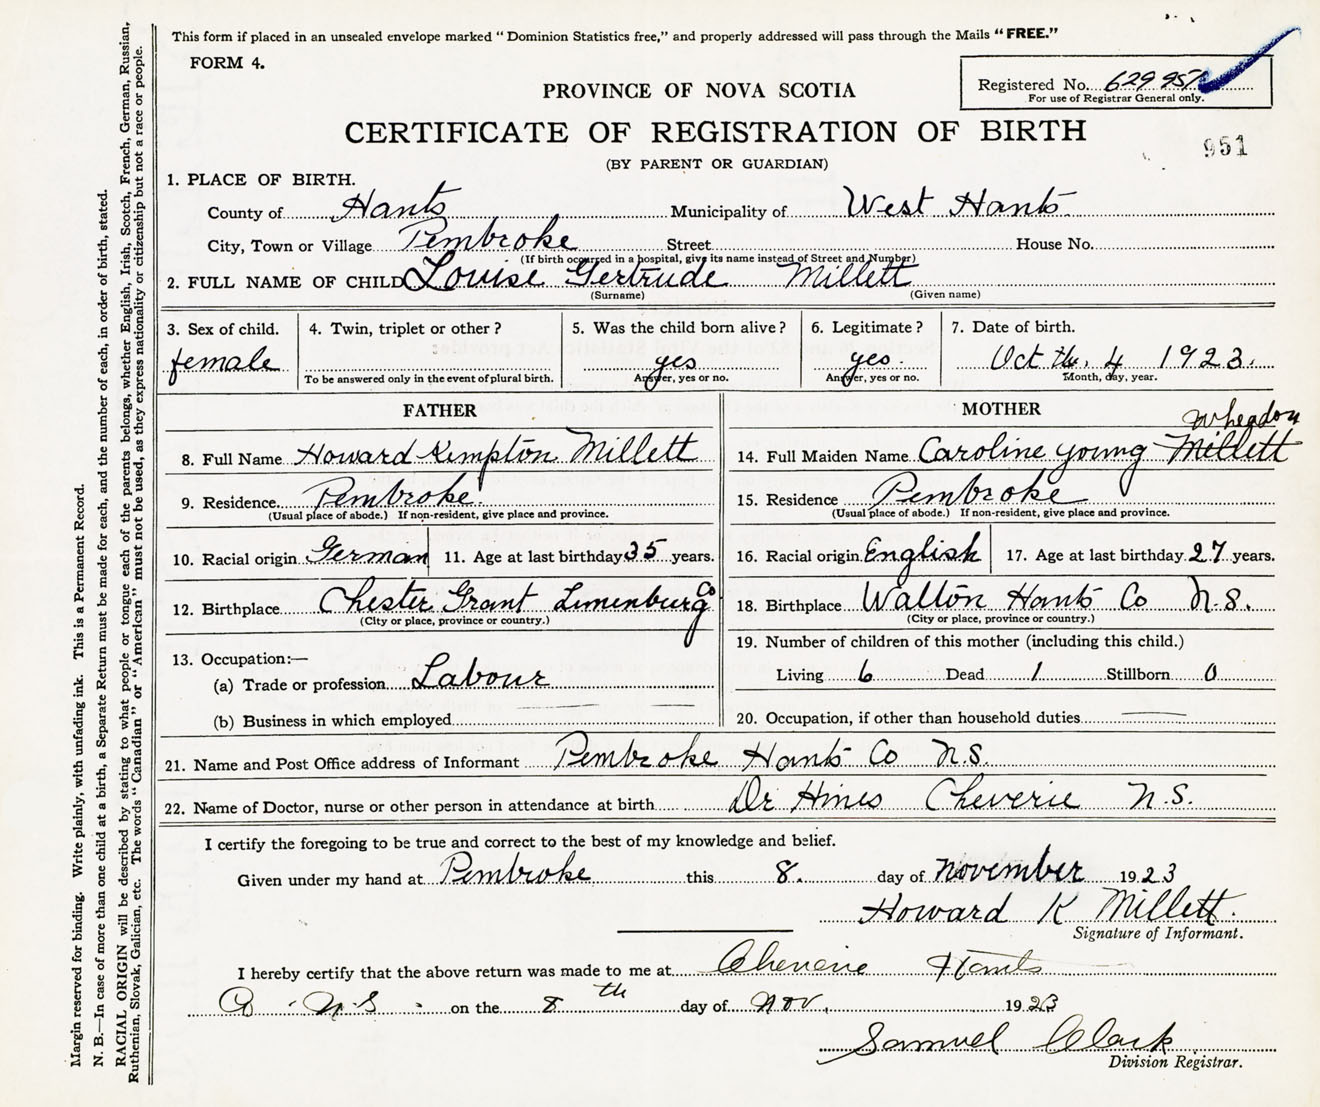 This form if placed in an unsealed envelope marked "Dominion Statistics free," and properly addressed will pass through the Mails "FREE."
FORM 4.
Registered No. 629 957
For use of Registrar General only.
PROVINCE OF NOVA SCOTIA
CERTIFICATE OF REGISTRATION OF BIRTH
951
(BY PARENT OR GUARDIAN)
1. PLACE OF BIRTH.
County of Hants Municipality of West Hants
City, Town or Village Pembroke Street House No.
(If birth occurred in a hospital, give its name instead of Street and Number)
2. FULL NAME OF CHILD Louise Gertrude Millett
(Surname) (Given name)
3. Sex of child. 4. Twin, triplet or other? 5. Was the child born alive? 6. Legitimate? 7. Date of birth.
female yes yes. Oct the. 4 1923.
To be answered only in the event of plural birth. Answer, yes or no. Answer, yes or no. Month, day, year.
FATHER MOTHER
Wheadon
8. Full Name Howard Kempton Millett 14. Full Maiden Name Caroline Young Millett
9. Residence Pembroke 15. Residence Pembroke
(Usual place of abode.) If non-resident, give place and province. (Usual place of abode.) If non-resident, give place and province.
10. Racial origin German 11. Age at last birthday 35 years. 16. Racial origin English 17. Age at last birthday 27 years.
12. Birthplace Chester Grant Lunenburg Co 18. Birthplace Walton Hants Co N.S.
(City or place, province or country.) (City or place, province or country.)
19. Number of children of this mother (including this child.)
13. Occupation:—
(a) Trade or profession Labour Living 6 Dead 1 Stillborn 0
(b) Business in which employed 20. Occupation, if other than household duties
21. Name and Post Office address of Informant Pembroke Hants Co N.S.
22. Name of Doctor, nurse or other person in attendance at birth Dr Hines Cheverie N.S.
I certify the foregoing to be true and correct to the best of my knowledge and belief.
Given under my hand at Pembroke this 8. day of November 1923
Howard K Millett.
Signature of Informant.
I hereby certify that the above return was made to me at Cheverie Hants
N.S. on the 8th day of Nov. 1923
Samuel Clark
Division Registrar.
Margin reserved for binding. Write plainly, with unfading ink. This is a Permanent Record.
N. B.—In case of more than one child at a birth, a Separate Return must be made for each, and the number of each, in order of birth, stated.
RACIAL ORIGIN will be described by stating to what people or tongue each of the parents belongs, whether English, Irish, Scotch, French, German, Russian,
Ruthenian, Slovak, Galician, etc. The words "Canadian" or "American" must not be used, as they express nationality or citizenship but not a race or people.